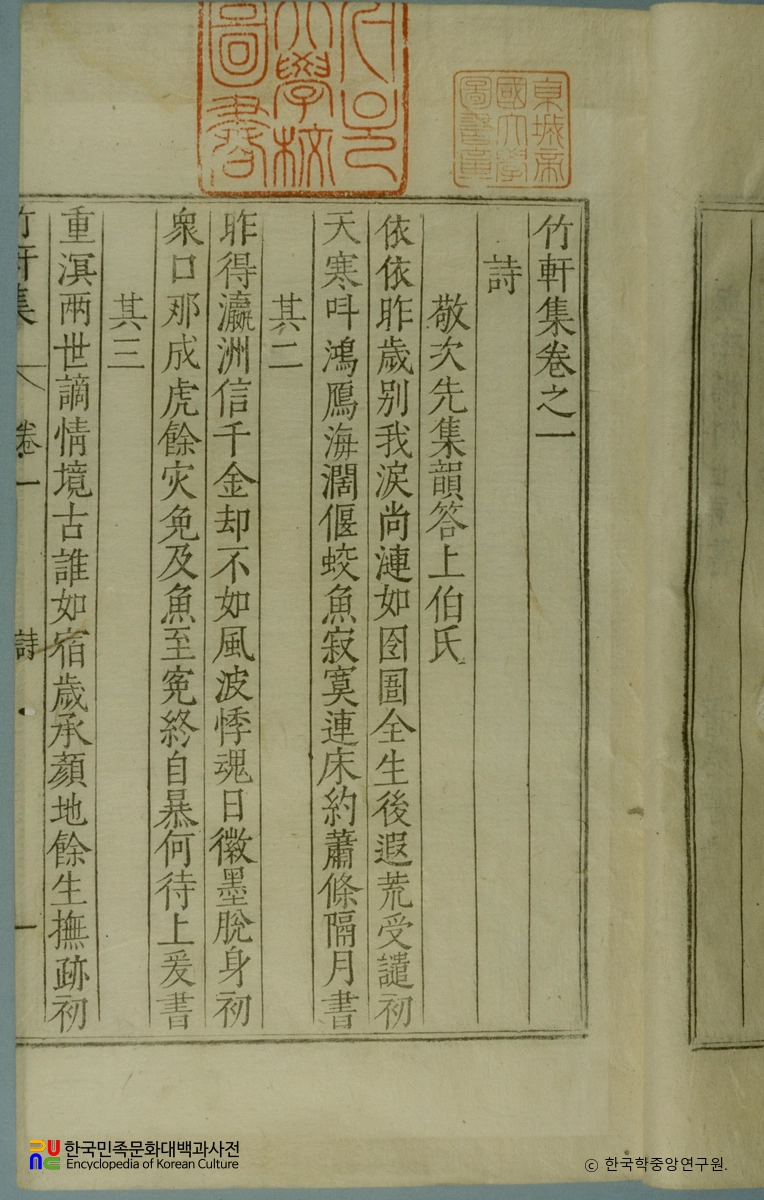 竹軒集卷之一
詩
敬次先集韻答上伯氏
依依昨歲別我淚尚漣如囹圄全生後遐荒受譴初
天寒呌鴻鴈海濶偃蛟魚寂寞連床約蕭條隔月書
其二
昨得瀛洲信千金却不如風波悸魂日徽墨脫身初
衆口那成虎餘灾免及魚至寃終自暴何待上爰書
其三
重溟兩世謫情境古誰如宿歲承顔地餘生撫跡初
竹軒集 卷一 詩 一
東城帝
國大學
圖書章
大學校
圖書
한국민족문화대백과사전
Encyclopedia of Korean Culture
ⓒ 한국학중앙연구원.